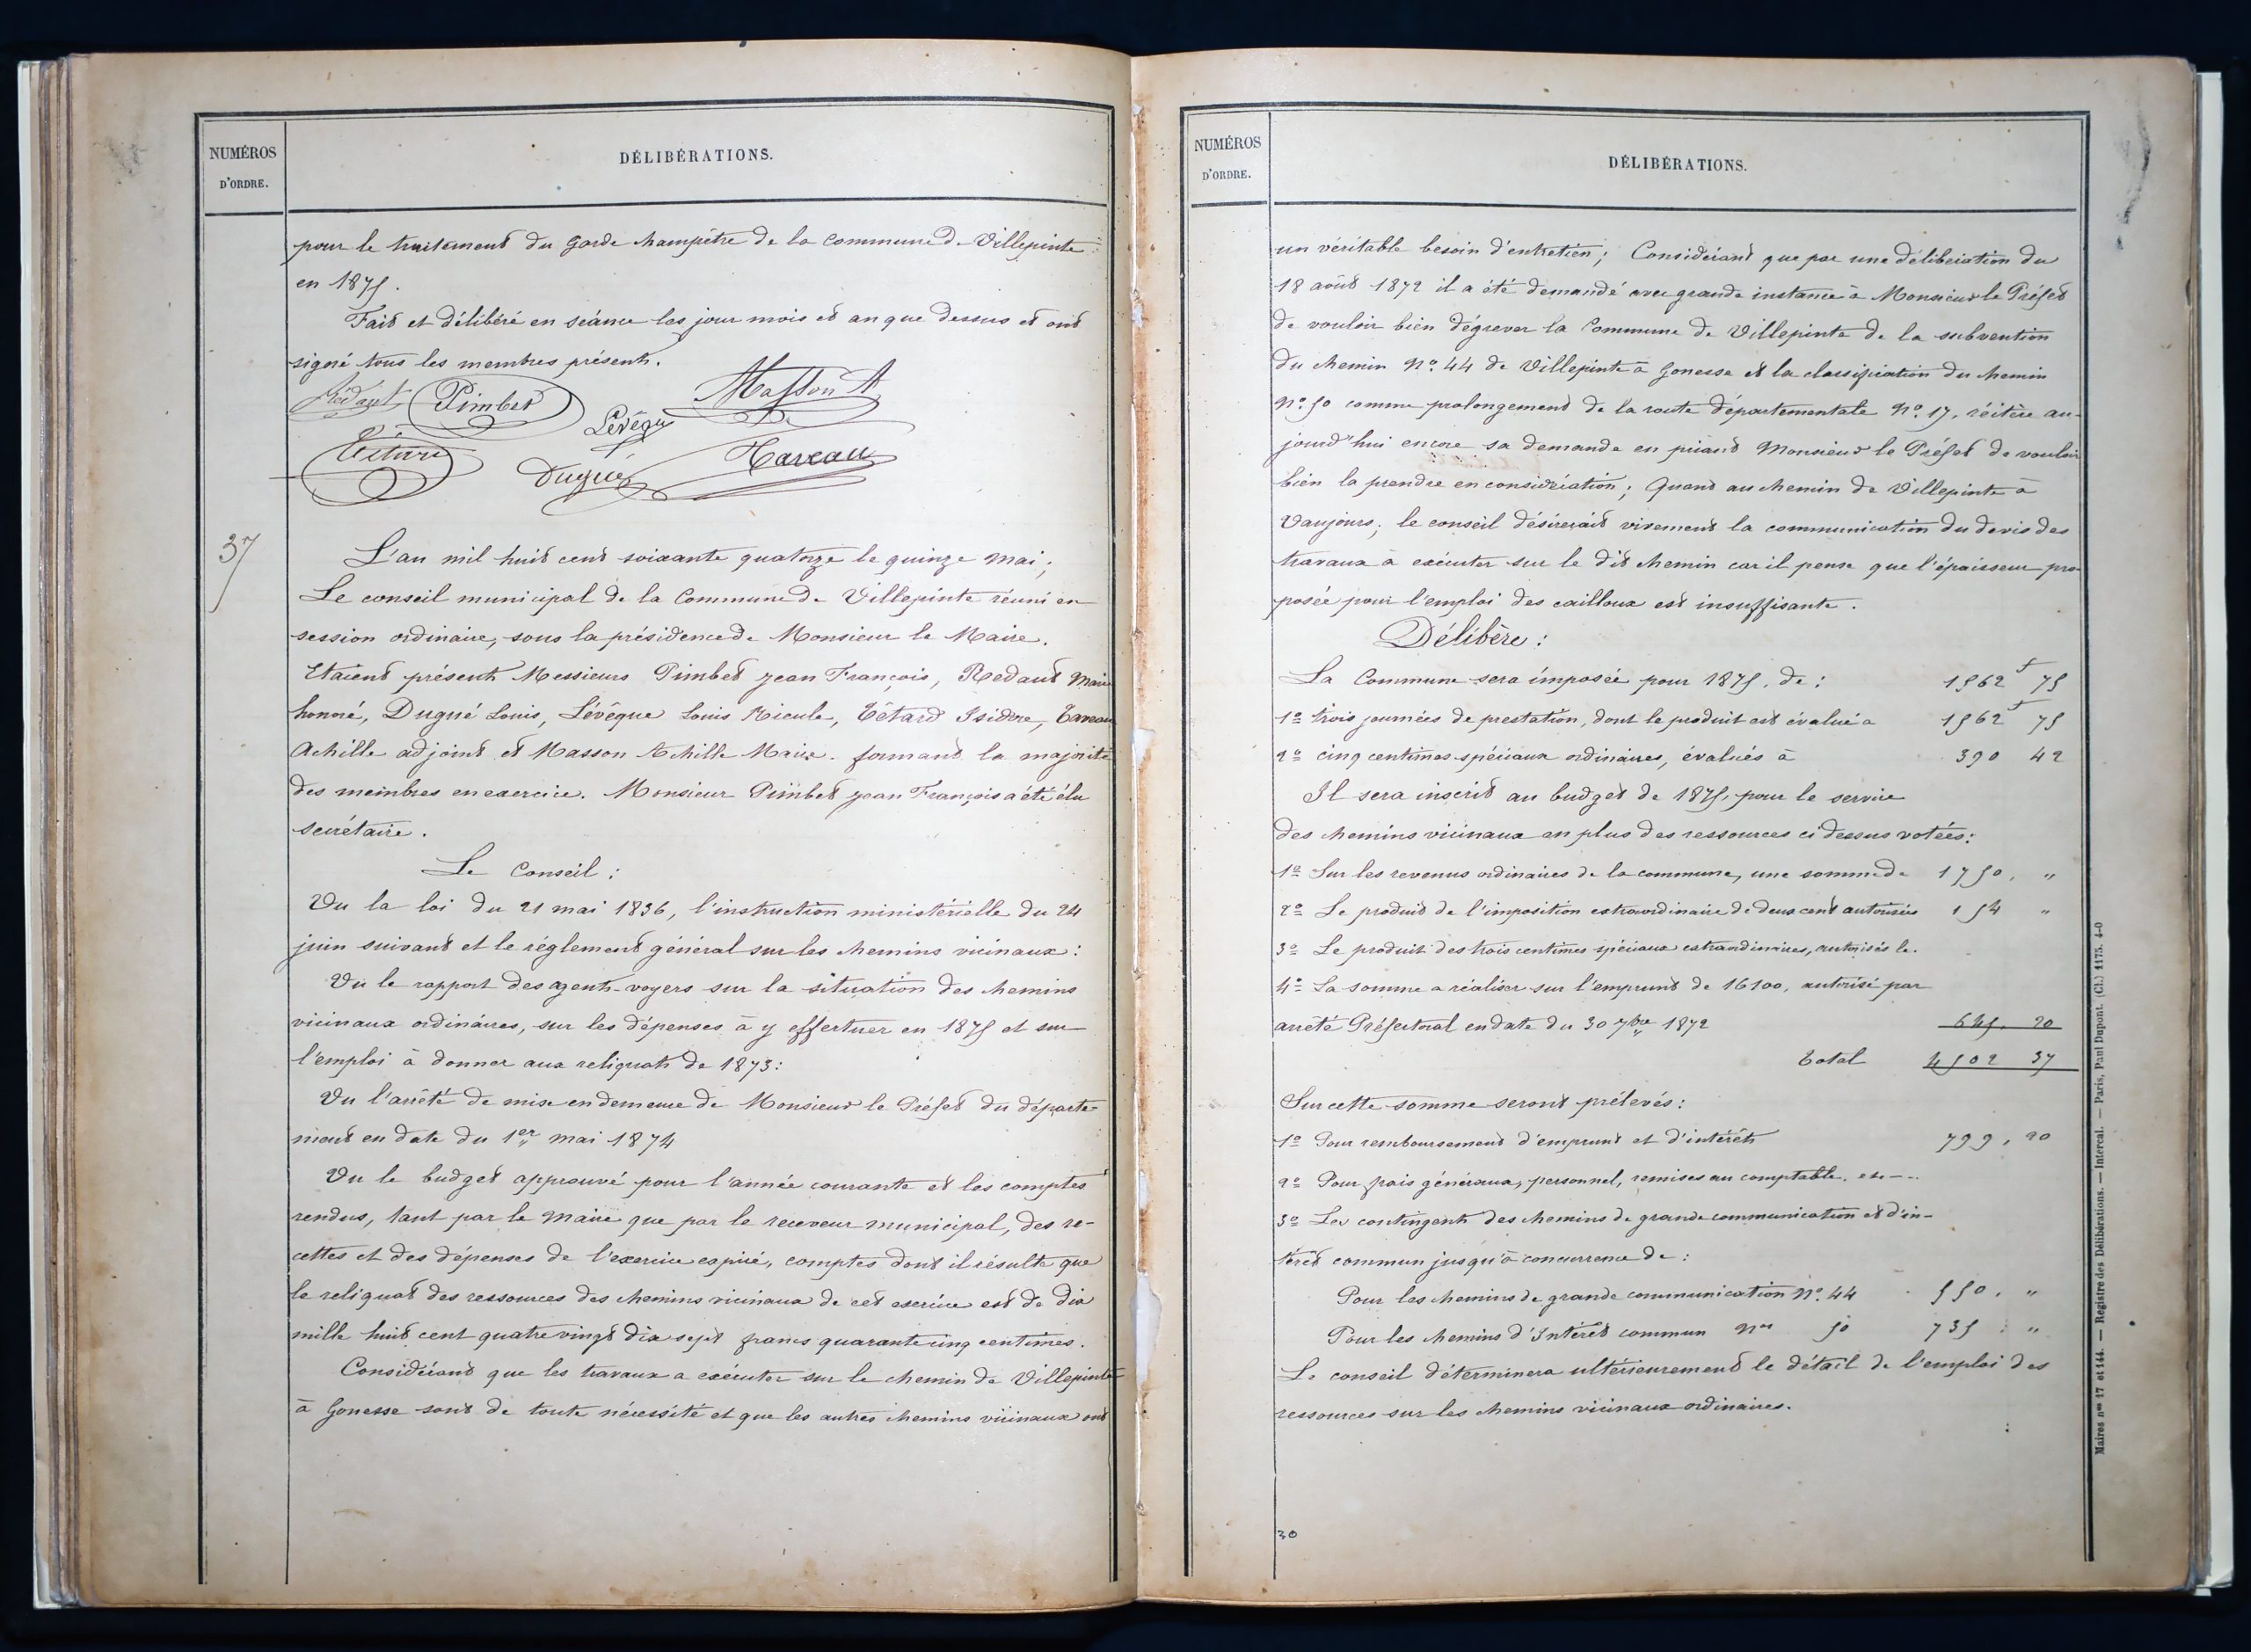 NUMÉROS
D'ORDRE.
DÉLIBÉRATIONS.
pour le traitement du Garde champêtre de la Commune de Villepinte
en 1875.
Fait et délibéré en séance les jour mois et an que dessus et ont
signé tous les membres présents.
Rédaut Pimbet Masson A
Lévêque
Tétard Dugué Taveau
37
L'an mil huit cent soixante quatorze le quinze Mai;
Le conseil municipal de la Commune de Villepinte réuni en
session ordinaire, sous la présidence de Monsieur le Maire.
Etaient présents Messieurs Pimbet Jean François, Redaut Marie
honoré, Dugué Louis, Lévêque Louis Nicule, Tétard Isidore, Taveau
Achille adjoint et Masson Achille Maire. formant la majorité
des membres en exercice. Monsieur Pimbet Jean François a été élu
secrétaire.
Le Conseil :
Vu la loi du 21 mai 1836, l'instruction ministérielle du 24
juin suivant et le réglement général sur les chemins vicinaux :
Vu le rapport des agents-voyers sur la situation des chemins
vicinaux ordinaires, sur les dépenses à y effectuer en 1875 et sur
l'emploi à donner aux reliquats de 1873 :
Vu l'arrêté de mise en demeure de Monsieur le Préfet du départe-
ment en date du 1er mai 1874
Vu le budget approuvé pour l'année courante et les comptes
rendus, tant par le Maire que par le receveur municipal, des re-
cettes et des dépenses de l'exercice expiré, comptes dont il résulte que
le reliquat des ressources des chemins vicinaux de cet exercice est de dix
mille huit cent quatre vingt dix sept francs quarante cinq centimes.
Considérant que les travaux a exécuter sur le chemin de Villepinte
à Gonesse sont de toute nécessité et que les autres chemins vicinaux ont
NUMÉROS
D'ORDRE.
DÉLIBÉRATIONS.
un véritable besoin d'entretien ; Considérant que par une délibération du
18 août 1872 il a été demandé avec grande instance à Monsieur le Préfet
de vouloir bien dégrever la Commune de Villepinte de la subvention
du chemin No. 44 de Villepinte à Gonesse et la classification du chemin
No. 50 comme prolongement de la route départementale No. 17, réitère au-
jourd'hui encore sa demande en priant Monsieur le Préfet de vouloir
bien la prendre en considération ; Quant au chemin de Villepinte à
Vaujours ; le conseil désirerait vivement la communication du devis des
travaux à exécuter sur le dit chemin car il pense que l'épaisseur pro-
posée pour l'emploi des cailloux est insuffisante.
Délibère :
La Commune sera imposée pour 1875, de : 1562 f 75
1o trois journées de prestation, dont le produit est évalué a 1562 f 75
2o cinq centimes spéciaux ordinaires, évalués à 390 42
Il sera inscrit au budget de 1875, pour le service
des chemins vicinaux en plus des ressources ci dessus votées :
1o Sur les revenus ordinaires de la commune, une somme de 1750, "
2o Le produit de l'imposition extraordinaire de deux cent autorisés 154 "
3o Le produit des trois centimes spéciaux extraordinaires, autorisés le.
4o La somme a réaliser sur l'emprunt de 16100, autorisé par
arrêté Préfectoral en date du 30 7bre 1872 645. 20
Total 4502 37
Sur cette somme seront prélevés :
1o Pour remboursement d'emprunt et d'intérêts 799, 20
2o Pour frais généraux, personnel, remises au comptable, etc--
3o Les contingents des chemins de grande communication et d'in-
térêt commun jusqu'à concurrence de :
Pour les chemins de grande communication No. 44 550, "
Pour les chemins d'Intérêt commun Nos 50 735 : "
Le conseil déterminera ultérieurement le détail de l'emploi des
ressources sur les chemins vicinaux ordinaires.
30
Maires nos 17 et 144. — Registre des Délibérations. — Intercal. — Paris, Paul Dupont. (Cl.) 1175. 4-0